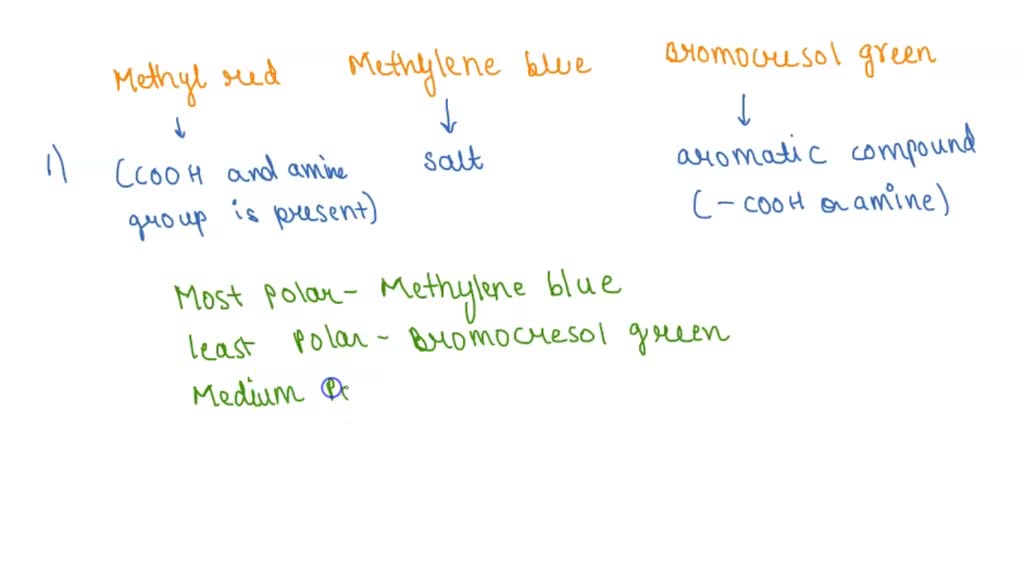 Methyl red Methylene blue Bromocresol green
1) (COOH and amine salt aromatic compound
group is present) (- COOH or amine)
Most polar - Methylene blue
least polar - Bromocresol green
Medium Po